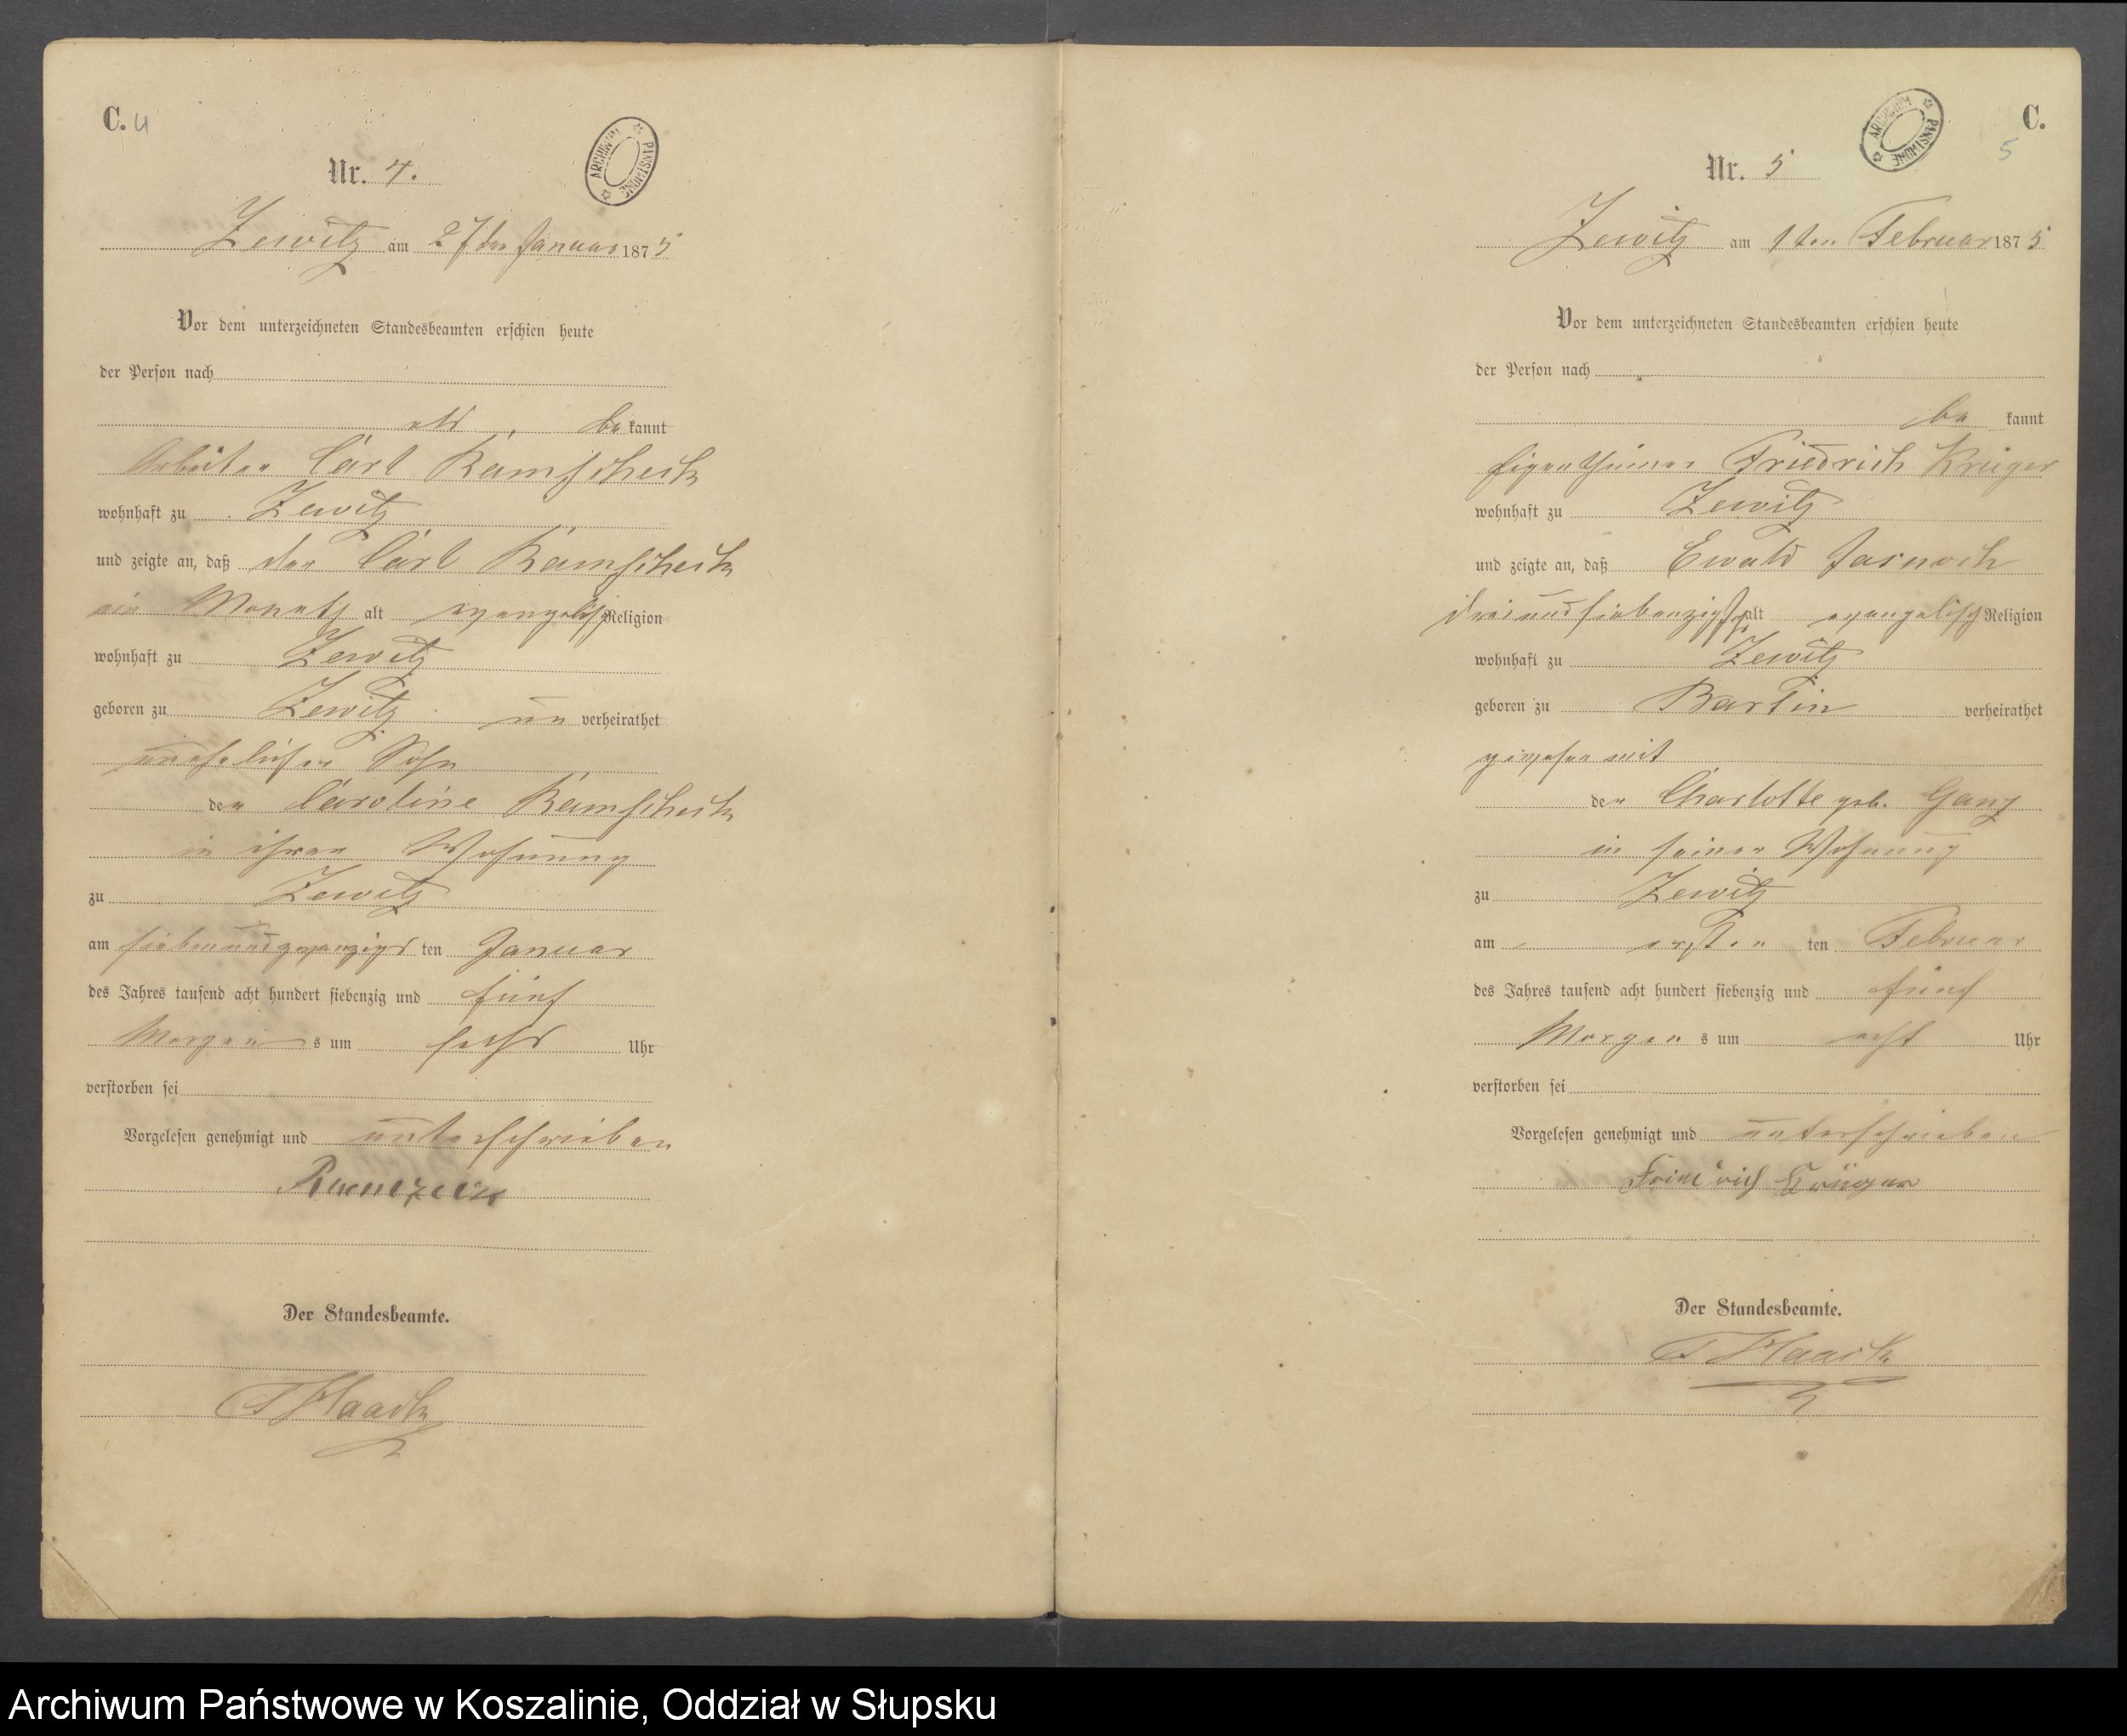 C. 4
Nr. 4.
ARCHIWUM PAŃSTWOWE
Zewitz am 27ten Januar 1875
Vor dem unterzeichneten Standesbeamten erschien heute
der Person nach
be kannt
Arbeiter Carl Ramscheck
wohnhaft zu Zewitz
und zeigte an, daß der Carl Ramscheck
ein Monat alt evangelisch Religion
wohnhaft zu Zewitz
geboren zu Zewitz un verheirathet
unehelicher Sohn
der Caroline Ramscheck
in ihrer Wohnung
zu Zewitz
am siebenundzwanzigs ten Januar
des Jahres tausend acht hundert siebenzig und fünf
Morgen s um sechs Uhr
verstorben sei
Vorgelesen genehmigt und unterschrieben
Der Standesbeamte.
Haack
C.
5
Nr. 5
ARCHIWUM PAŃSTWOWE
Zewitz am 1ten Februar 1875
Vor dem unterzeichneten Standesbeamten erschien heute
der Person nach
be kannt
Eigenthümer Friedrich Krüger
wohnhaft zu Zewitz
und zeigte an, daß Ewald Jasnoch
dreiundsiebenzig alt evangelisch Religion
wohnhaft zu Zewitz
geboren zu Bartin verheirathet
gewesen mit
der Charlotte geb. Ganz
in seiner Wohnung
zu Zewitz
am ersten ten Februar
des Jahres tausend acht hundert siebenzig und fünf
Morgen s um acht Uhr
verstorben sei
Vorgelesen genehmigt und unterschrieben
Friedrich Krüger
Der Standesbeamte.
Haack
Archiwum Państwowe w Koszalinie, Oddział w Słupsku